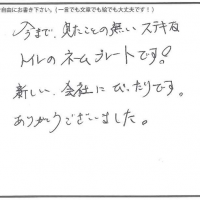 自由にお書き下さい。(一言でも文章でも絵でも大丈夫です!)
今まで、見たことの無い ステキな
トイレの ネームプレートです!
新しい、会社に ぴったりです。
ありがとうございました。